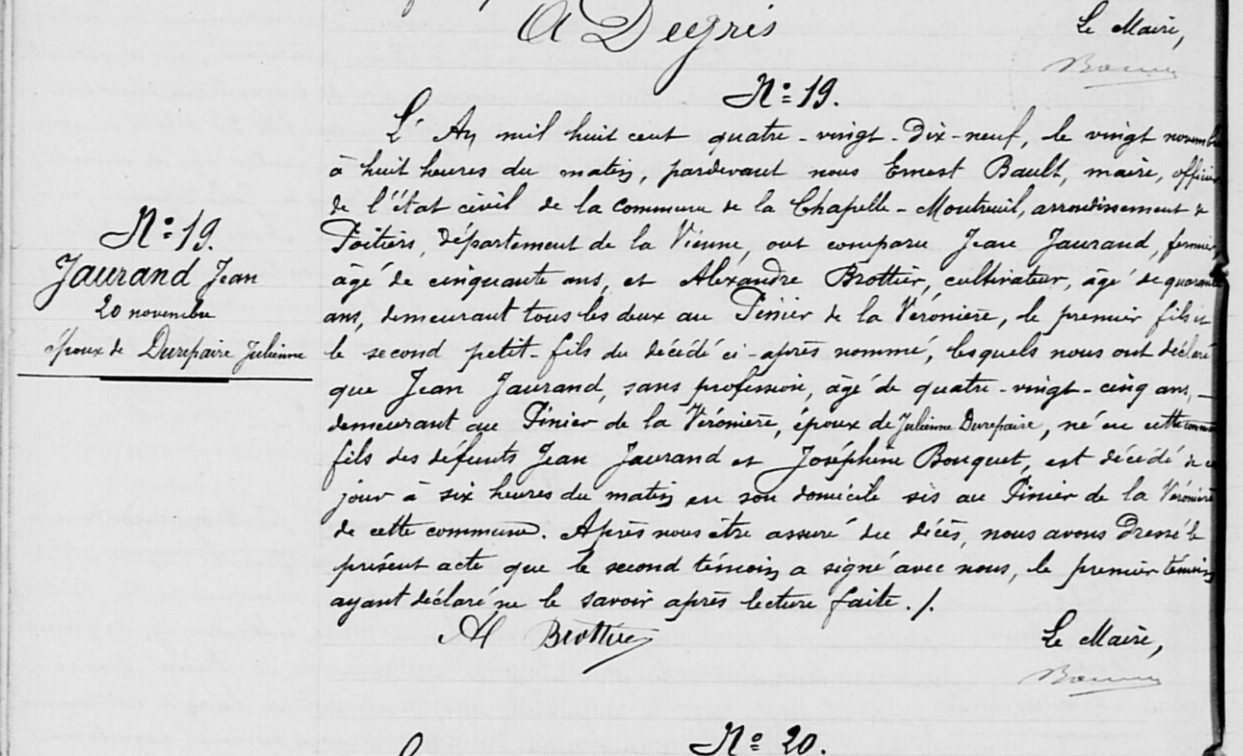 A Degris
Le Maire,
N° 19.
L'An mil huit cent quatre-vingt-dix-neuf, le vingt novembre
à huit heures du matin, pardevant nous Ernest Bault, maire, officier
de l'état civil de la commune de la Chapelle-Montreuil, arrondissement de
Poitiers, département de la Vienne, ont comparu Jean Jaurand, fermier,
âgé de cinquante ans, et Alexandre Brottier, cultivateur, âgé de quarante
ans, demeurant tous les deux au Pinier de la Véronière, le premier fils et
le second petit-fils du décédé ci-après nommé, lesquels nous ont déclaré
que Jean Jaurand, sans profession, âgé de quatre-vingt-cinq ans,
demeurant au Pinier de la Véronière, époux de Julienne Durepaire, né en cette commune
fils des défunts Jean Jaurand et Joséphine Bouquet, est décédé de ce
jour à six heures du matin en son domicile sis au Pinier de la Véronière
de cette commune. Après nous être assuré du décès, nous avons dressé le
présent acte que le second témoin a signé avec nous, le premier témoin
ayant déclaré ne le savoir après lecture faite. /.
N° 19.
Jaurand Jean
20 novembre
époux de Durepaire Julienne
A Brottier
Le Maire,
N° 20.